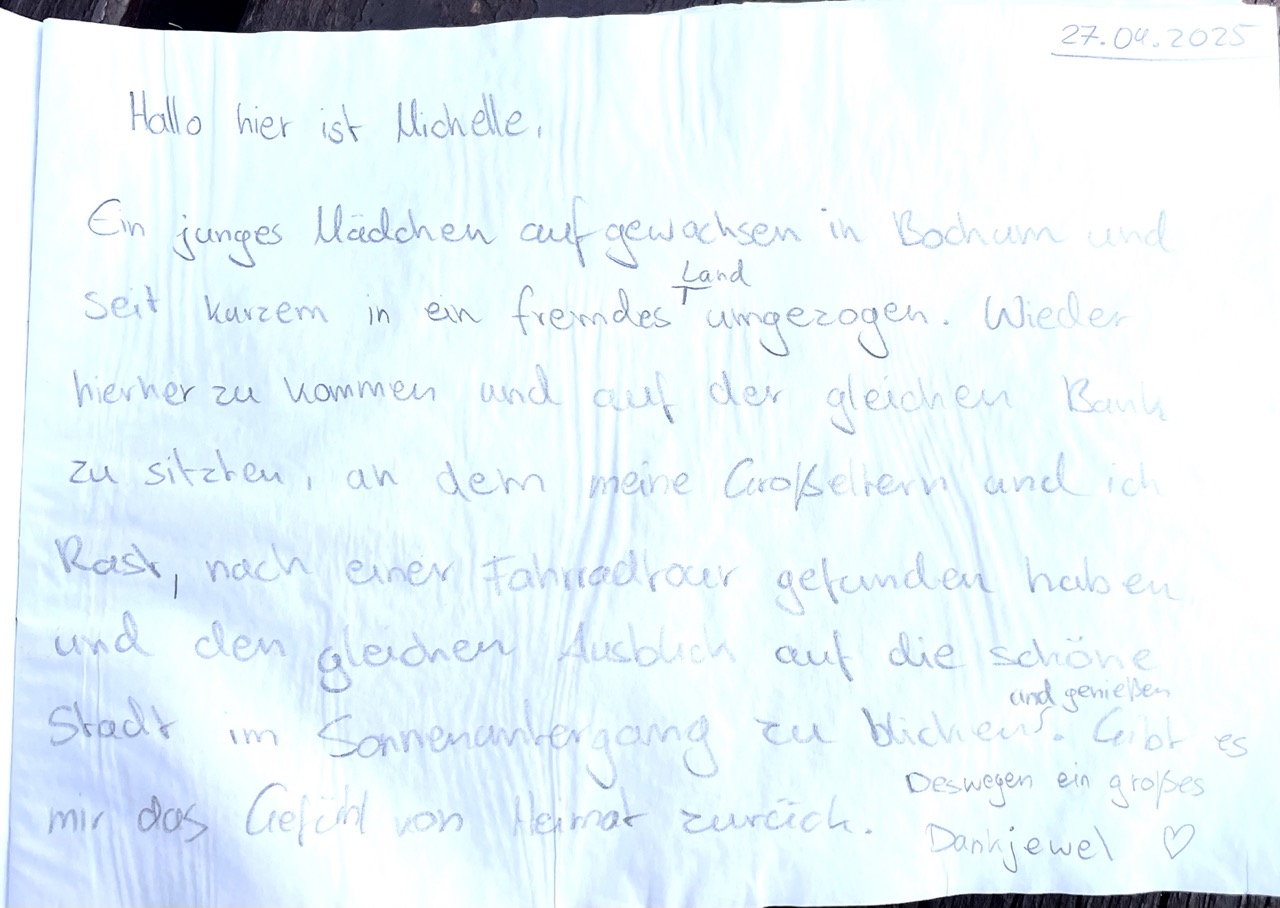 27.04.2025
Hallo hier ist Michelle.
Ein junges Mädchen aufgewachsen in Bochum und
Land
seit kurzem in ein fremdes umgezogen. Wieder
hierher zu kommen und auf der gleichen Bank
zu sitzten, an dem meine Großeltern und ich
Rast, nach einer Fahrradtour gefunden haben
und den gleichen Ausblick auf die schöne
und genießen
Stadt im Sonnenuntergang zu blicken. Gibt es
mir das Gefühl von Heimat zurück.
Deswegen ein großes
Dankjewel ♡